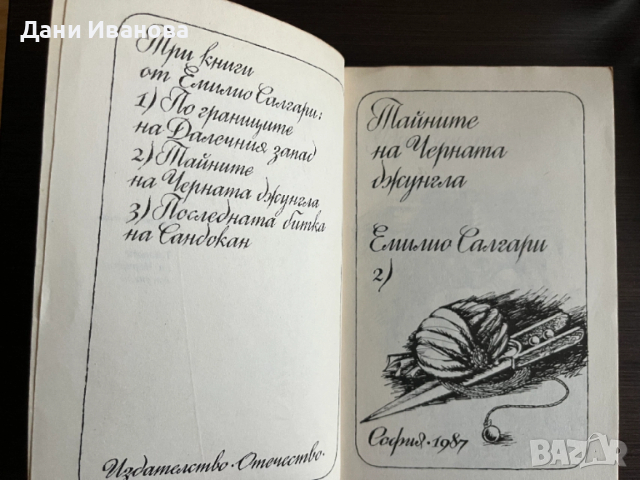 Дани Иванова
Три книги
от Емилио Салгари:
1) По границите
на Далечния запад
2) Тайните
на Черната джунгла
3) Последната битка
на Сандокан
Издателство · Отечество ·
Тайните
на Черната
джунгла
Емилио Салгари
2)
София · 1987
BAZAR